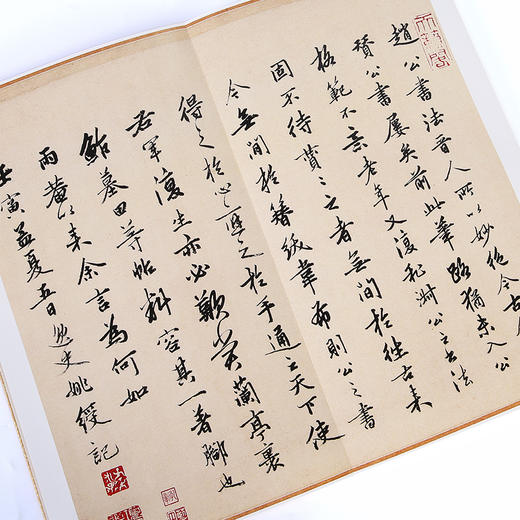 趙公書法晉人所以妙絕今古
贊公書屢矣前此筆路猶未入公
格範不意老年又復私淑公之書法
固不待贊之者無間於往古來
今無間於簪紱韋布則公之書
得之於心運之於手通之天下使
右軍復生亦必歎賞蘭亭裹
鮎墓田等帖料容其一著腳也
雨葊以來余言為何如
壬寅孟夏五日逸史姚綬記